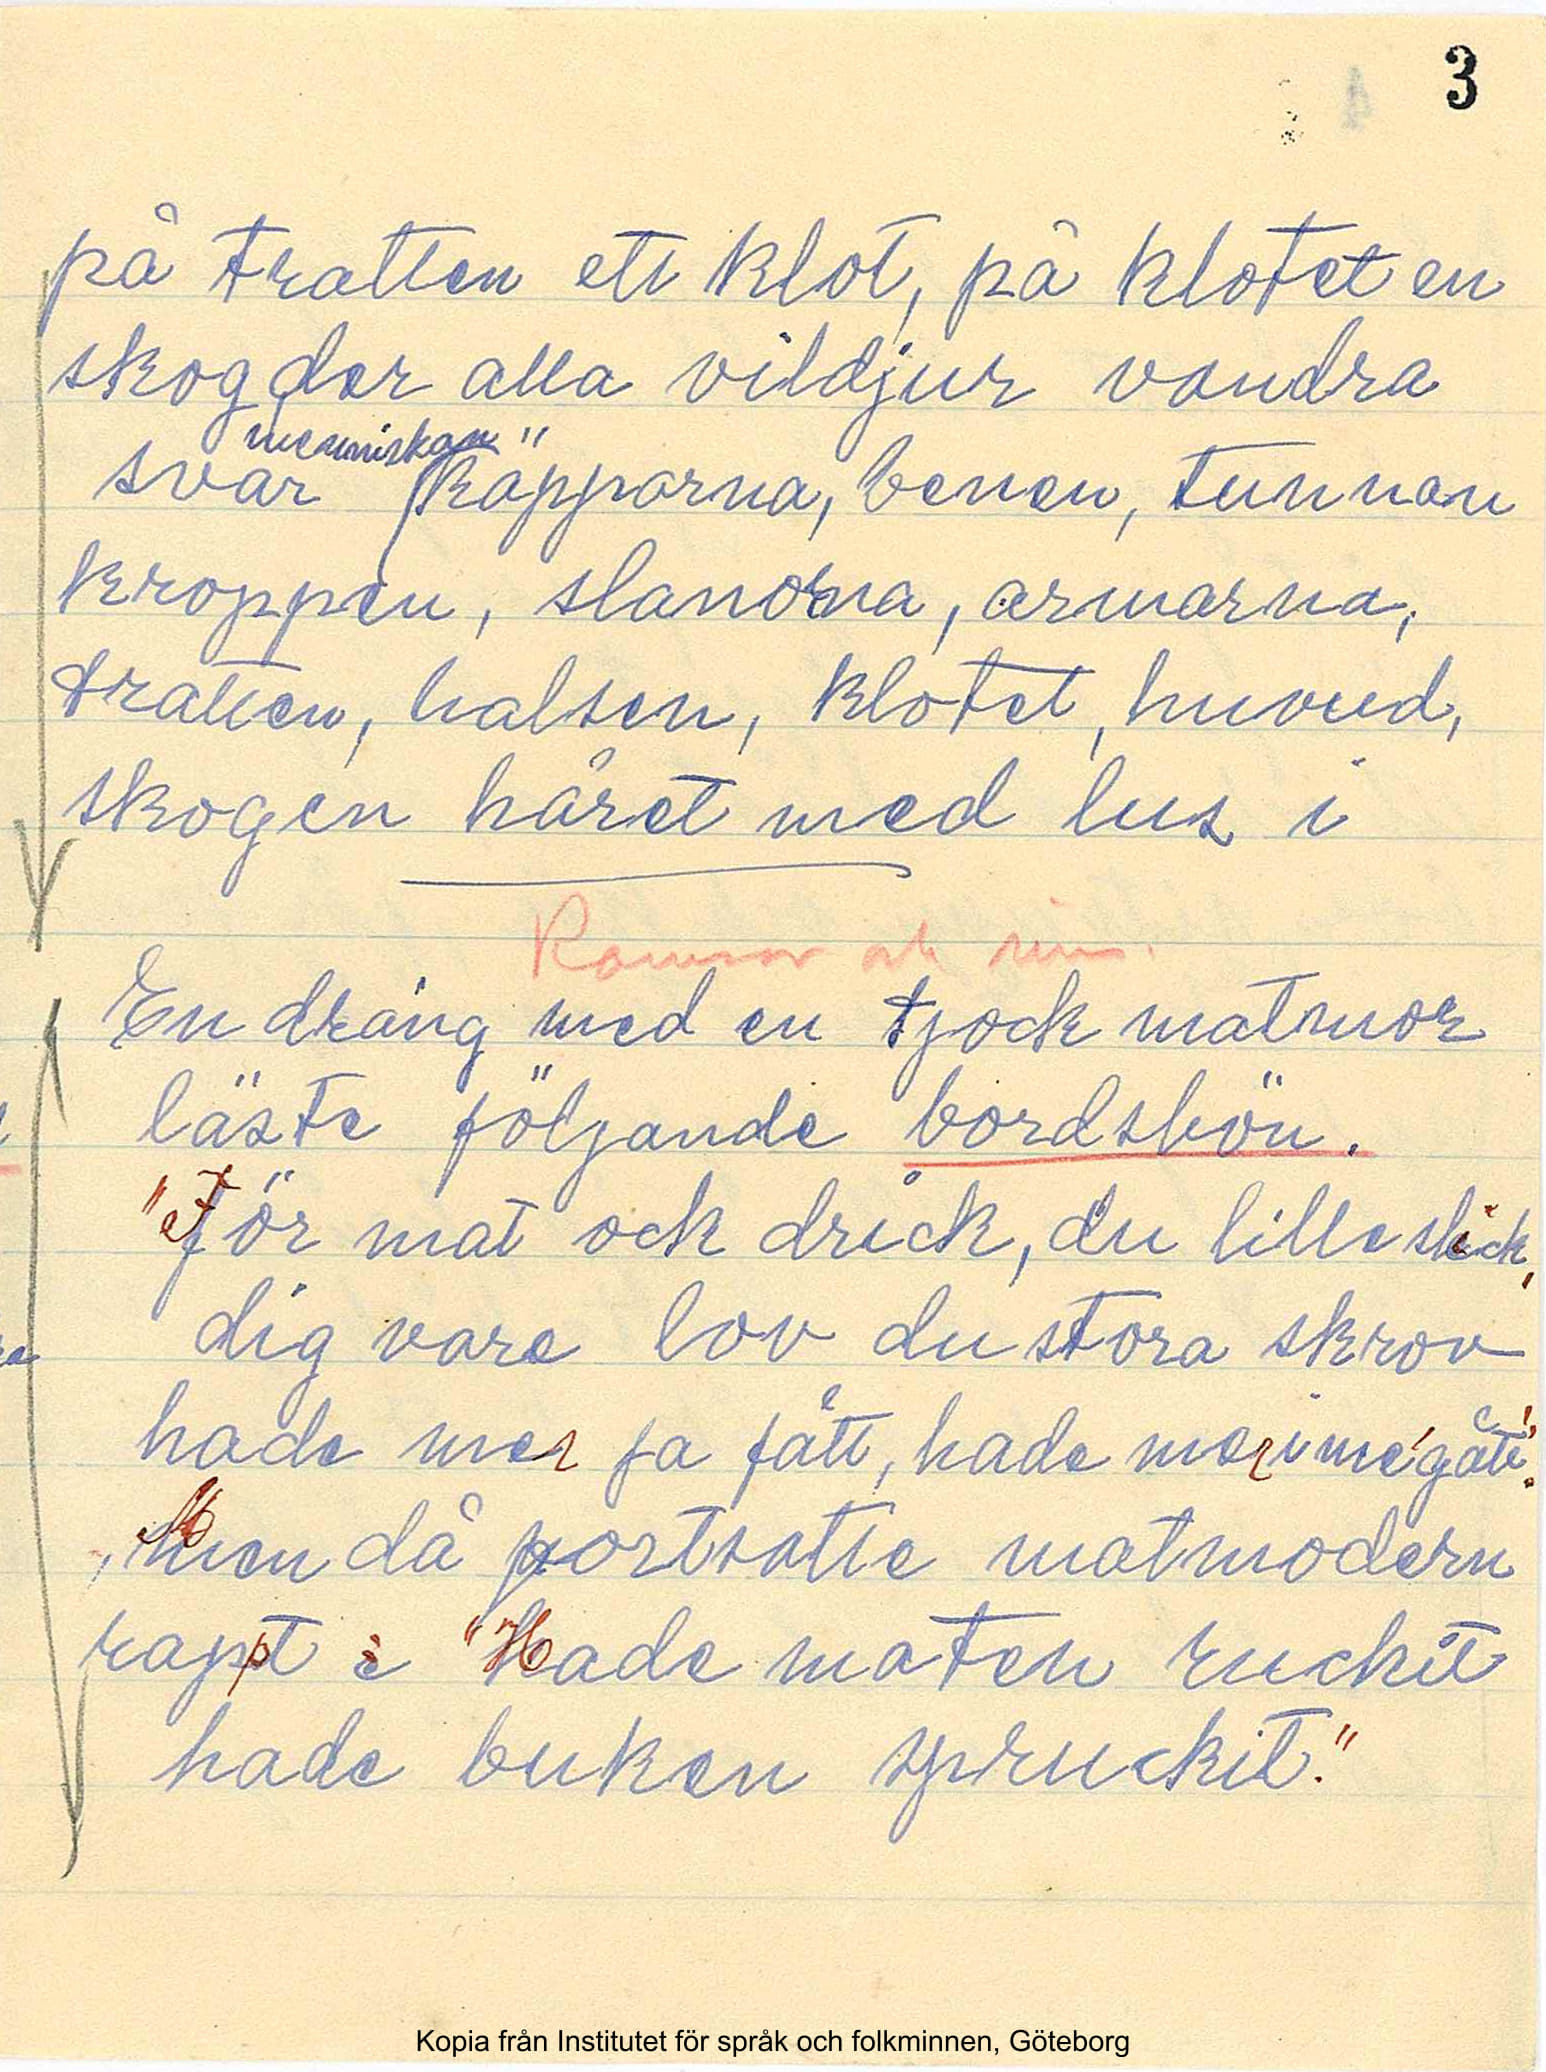 3
på tratten ett klot, på klotet en
skog der alla vildjur vandra
menniskan
svar käpparna, benen, tunnan
kroppen, slanorna, armarna,
tratten, halsen, klotet, huvud,
skogen håret med lus i
Ramsor och rim.
En dräng med en tjock matmor
läste följande bordsbön.
"För mat ock drick, du lille slick,
dig vare lov du stora skrov
hade mer ja fått, hade mer i me' gått".
Men då fortsatte matmodern
rapt: "Hade maten ruckit
hade buken spruckit."
Kopia från Institutet för språk och folkminnen, Göteborg